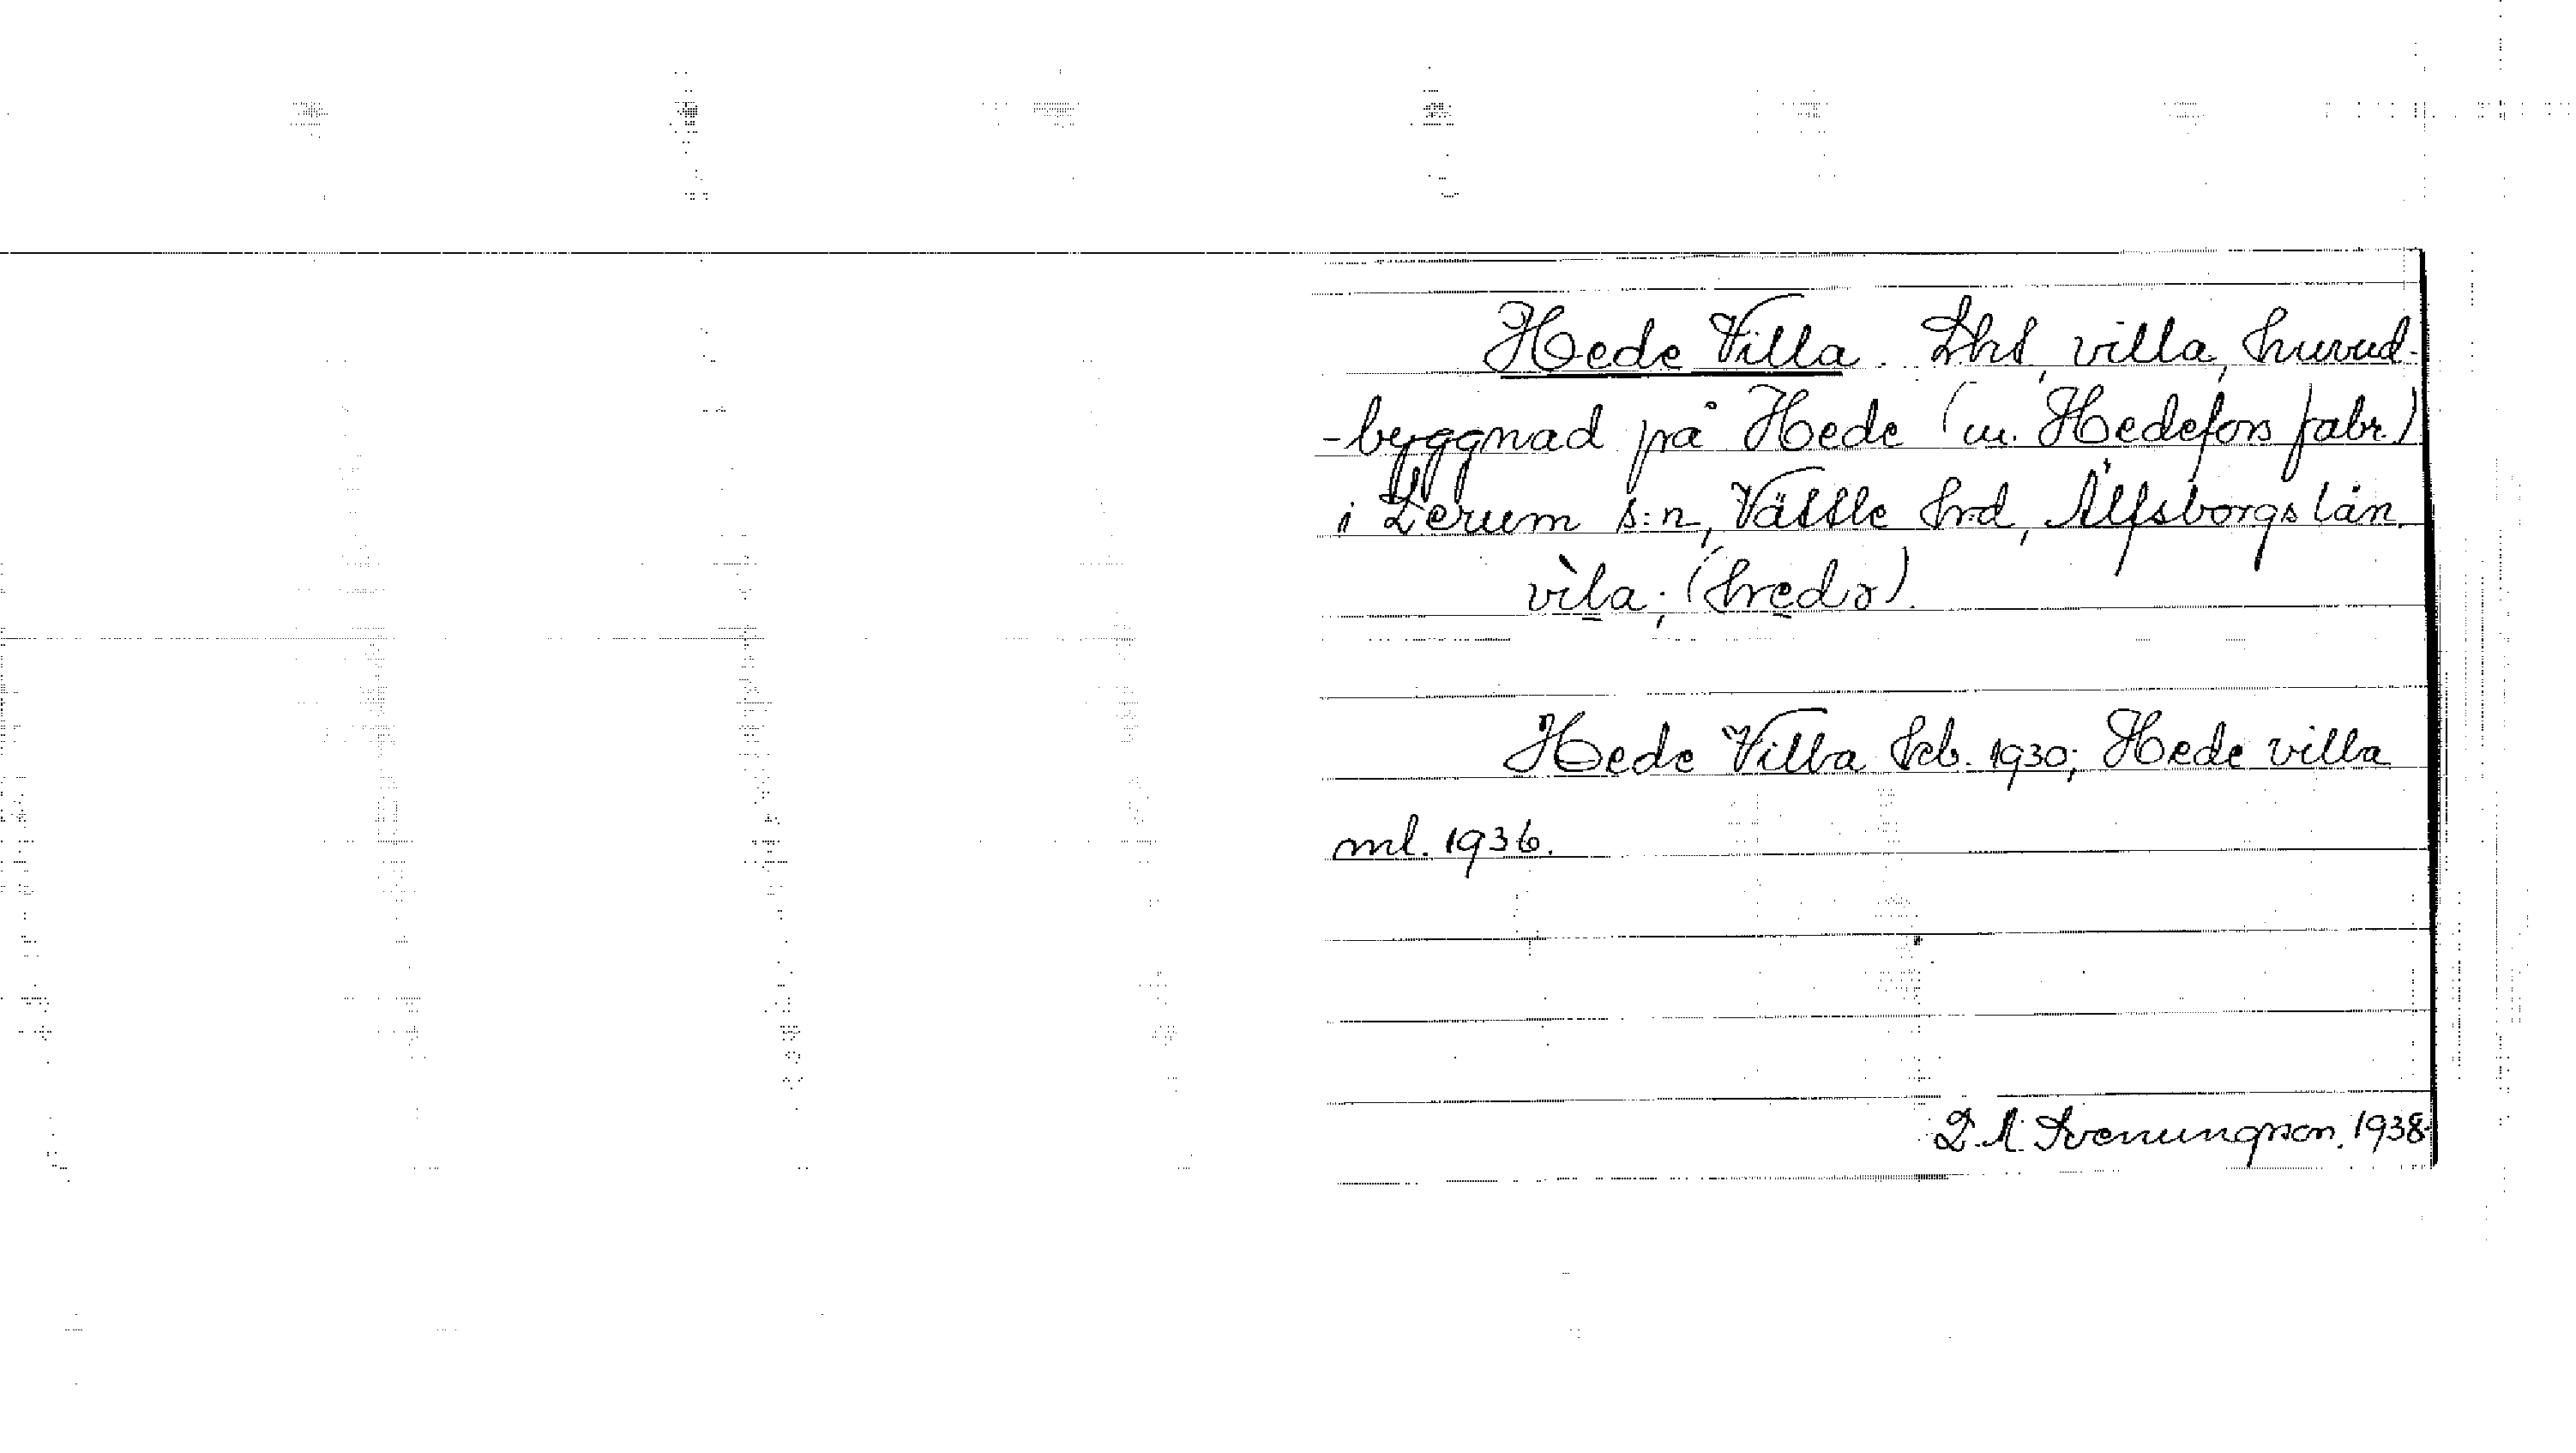 Hede Villa. Lht, villa, huvud-
-byggnad på Hede (u. Hedefors fabr.)
i Lerum s:n, Vättle hrd, Älfsborgs län.
vìla; (hredə).
Hede Villa tcb. 1930; Hede villa
ml. 1936.
D. A. Svenungson. 1938